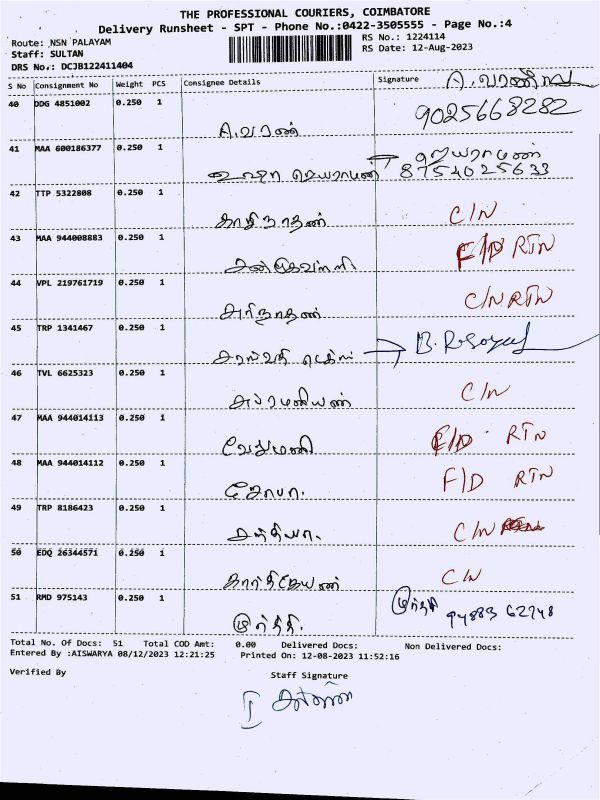 THE PROFESSIONAL COURIERS, COIMBATORE
Delivery Runsheet - SPT - Phone No.:0422-3505555 - Page No.:4
Route: NSN PALAYAM
RS No.: 1224114
Staff: SULTAN
RS Date: 12-Aug-2023
DRS No.: DCJB122411404
S No Consignment No Weight PCS Consignee Details Signature
40 DDG 4851002 0.250 1
9025668282
41 MAA 600186377 0.250 1
8754025633
42 TTP 5322808 0.250 1
காசிநாதன் C/N
43 MAA 944008883 0.250 1
F/D RTN
44 VPL 219761719 0.250 1
அரிநாதன் C/N RTN
45 TRP 1341467 0.250 1
46 TVL 6625323 0.250 1
C/N
47 MAA 944014113 0.250 1
வேலுமணி F/D RTN
48 MAA 944014112 0.250 1
ஷோபா. F/D RTN
49 TRP 8186423 0.250 1
C/N
50 EDQ 26344571 0.250 1
கார்த்திகேயன் C/N
51 RMD 975143 0.250 1
மூர்த்தி.
Total No. Of Docs: 51 Total COD Amt: 0.00 Delivered Docs: Non Delivered Docs:
Entered By :AISWARYA 08/12/2023 12:21:25 Printed On: 12-08-2023 11:52:16
Verified By Staff Signature